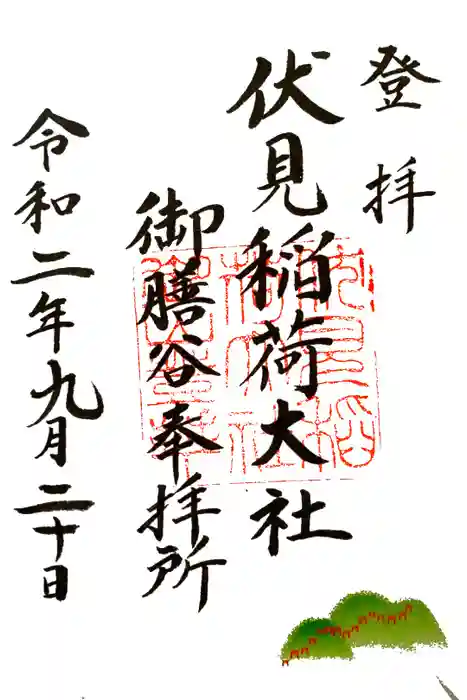 登拝
伏見稲荷大社
御膳谷奉拝所
令和二年九月二十日